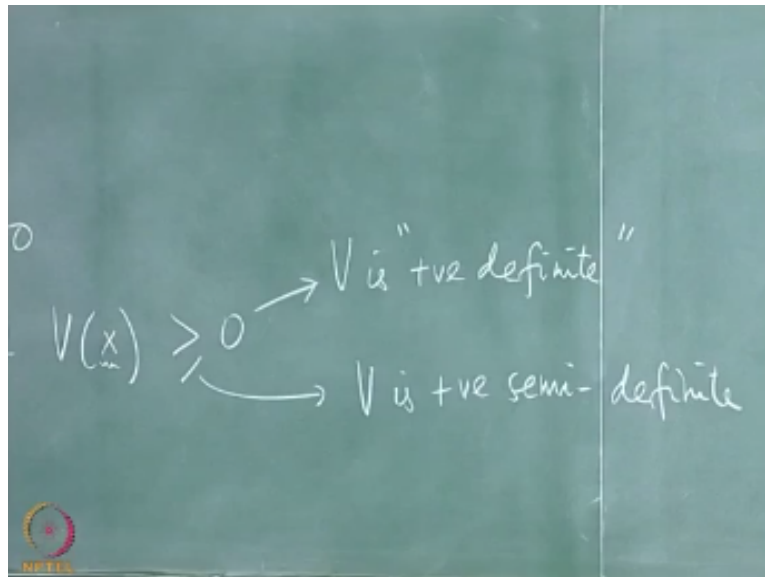 0
V is "+ve definite"
V(x) ≥ 0
V is +ve semi-definite
NPTEL